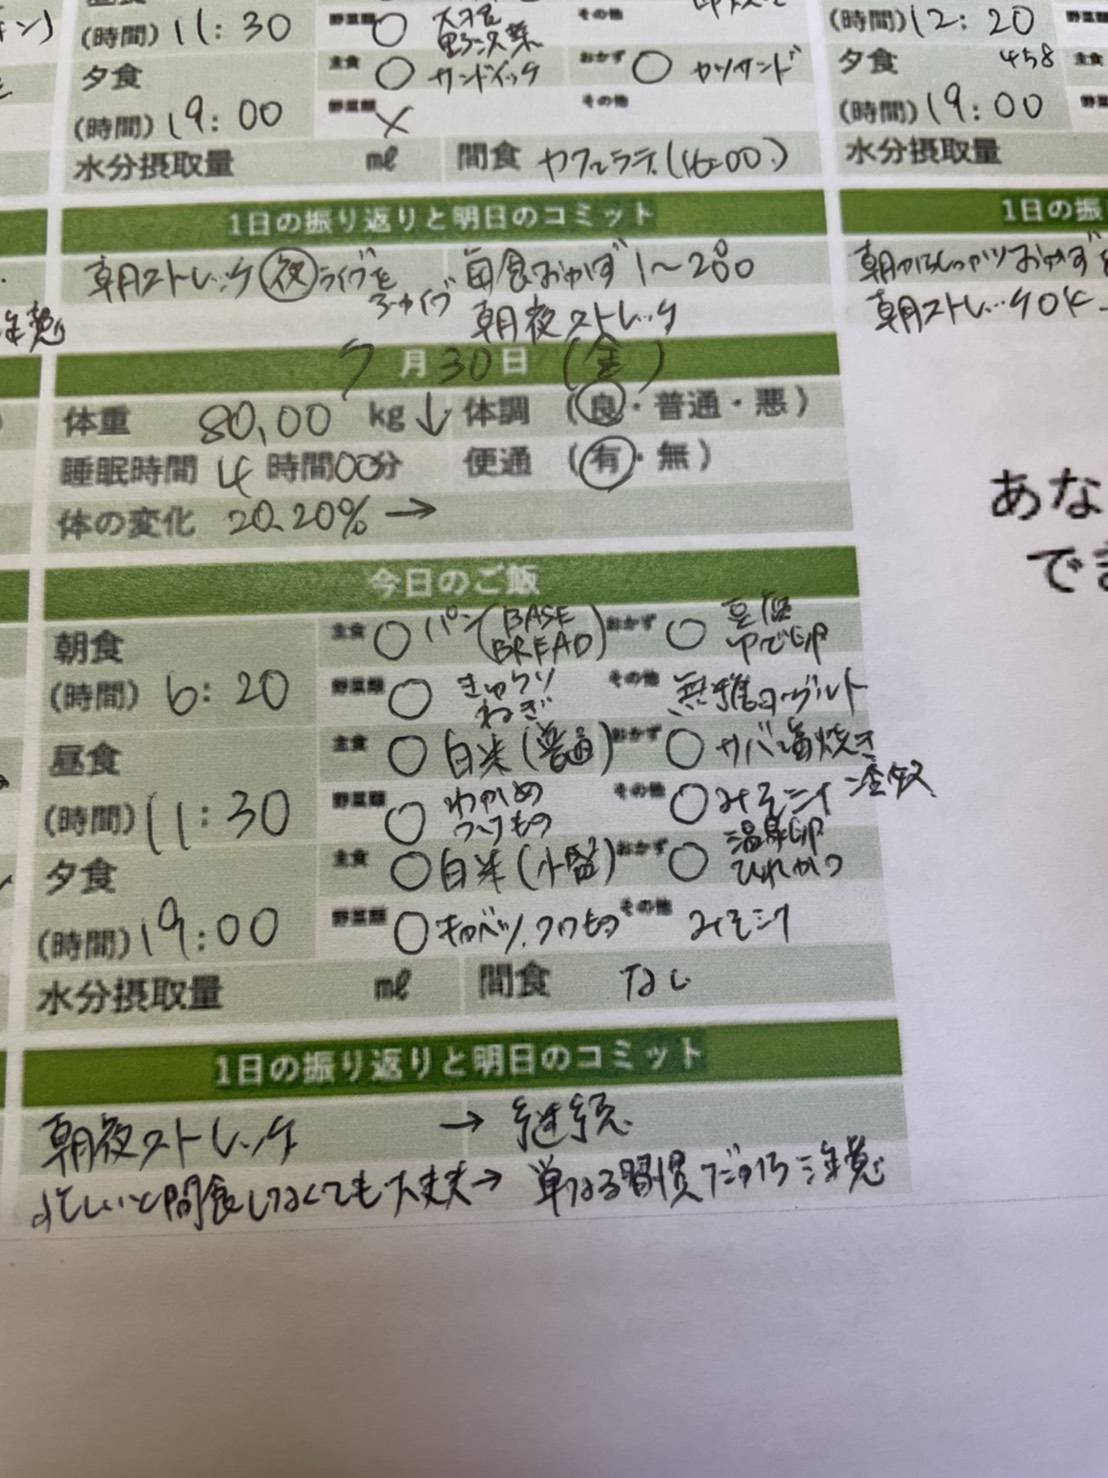 (時間) 11:30 野菜類 ○ 野沢菜 その他
夕食 主食 ○ サンドイッチ おかず ○ カツサンド
(時間) 19:00 野菜類 × その他
水分摂取量 ml 間食 カフェラテ (16:00)
1日の振り返りと明日のコミット
朝ストレッチ 夜 ライブを 毎食おかず 1〜2
朝夜ストレッチ
7月30日 (金)
体重 80.00 kg ↓ 体調 (良・普通・悪)
睡眠時間 4時間00分 便通 (有・無)
体の変化 20.20% →
今日のご飯
朝食 主食 ○ パン (BASE BREAD) おかず ○ 豆腐 ゆで卵
(時間) 6:20 野菜類 ○ きゅうり ねぎ その他 無糖ヨーグルト
昼食 主食 ○ 白米 (普通) おかず ○ サバ塩焼き
(時間) 11:30 野菜類 ○ わかめ つけもの その他 ○ みそ汁
夕食 主食 ○ 白米 (小盛) おかず ○ 温泉卵 ひれかつ
(時間) 19:00 野菜類 ○ キャベツ、つけもの その他 みそ汁
水分摂取量 ml 間食 なし
1日の振り返りと明日のコミット
朝夜ストレッチ → 継続
忙しいと間食しなくても大丈夫→ 単なる習慣だから注意
(時間) 12:20 野菜類
夕食 458 主食
(時間) 19:00
水分摂取量
1日の振
朝ストレッチOK
あな
で